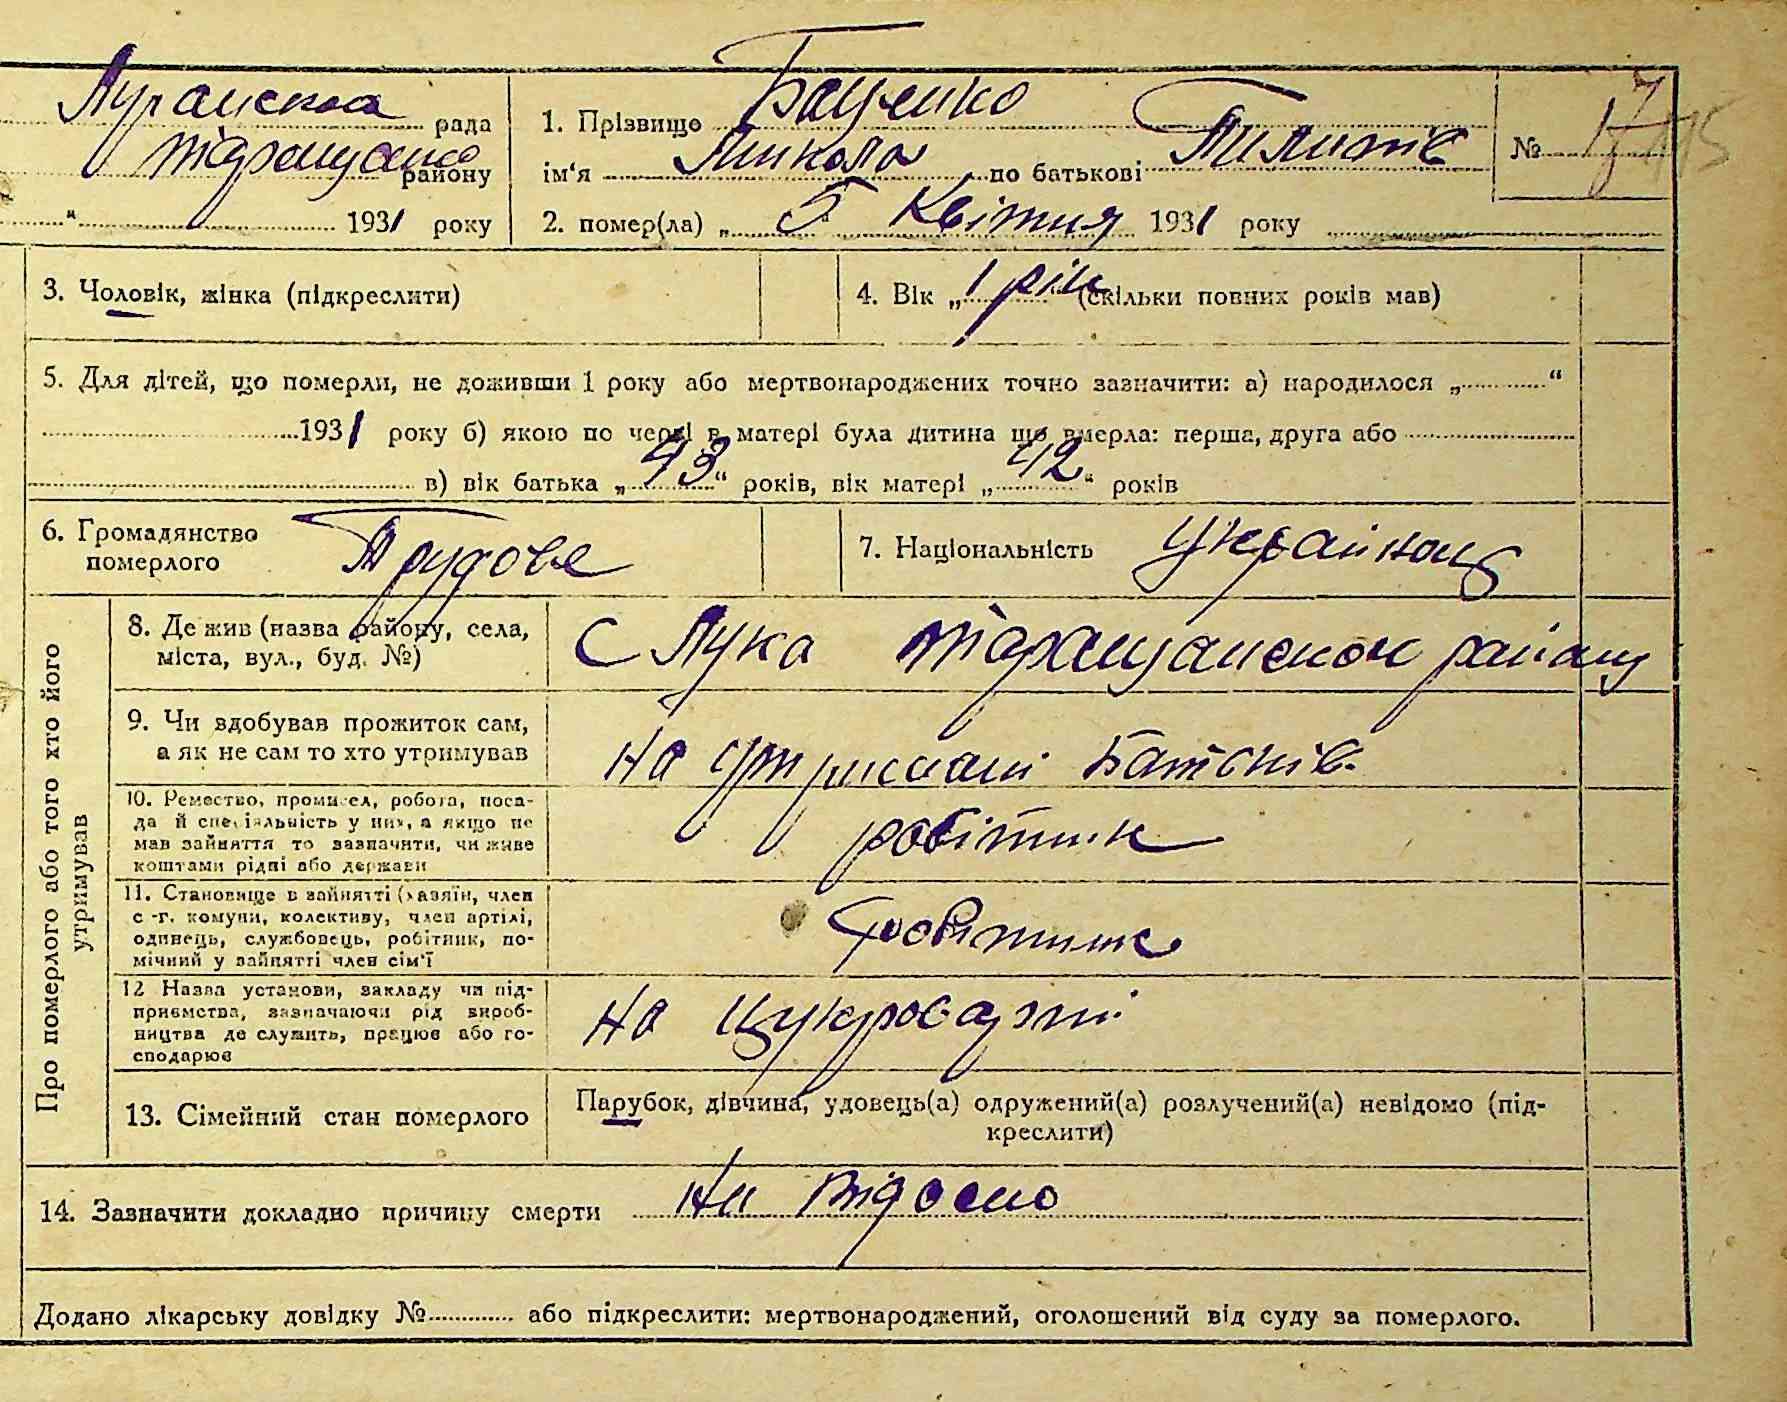 Лучанська рада
Таращансько району
“ 1931 року
1. Прізвище Баценко
ім'я Микола по батькові Пилипів
№ 17
2. помер(ла) „ 5 Квітня 1931 року
3. Чоловік, жінка (підкреслити)
4. Вік „ 1 рік “ (скільки повних років мав)
5. Для дітей, що померли, не доживши 1 року або мертвонароджених точно зазначити: а) народилося „ “
1931 року б) якою по черзі в матері була дитина що вмерла: перша, друга або
в) вік батька „ 43 “ років, вік матері „ 42 “ років
6. Громадянство
померлого
Трудове
7. Національність Українець
Про померлого або того хто його
утримував
8. Де жив (назва району, села,
міста, вул., буд. №)
с Лука Таращанского району
9. Чи здобував прожиток сам,
а як не сам то хто утримував
на утриманні батьків
10. Ремество, промисел, робота, поса-
да й спеціяльність у них, а якщо не
мав зайняття то зазначити, чи живе
коштами рідні або держави
робітник
11. Становище в зайнятті (хазяїн, член
с-г. комуни, колективу, член артілі,
одинець, службовець, робітник, по-
мічний у зайнятті член сім'ї
робітник
12 Назва установи, закладу чи під-
приємства, зазначаючи рід вироб-
ництва де служить, працює або го-
сподарює
на цукроварні
13. Сімейний стан померлого
Парубок, дівчина, удовець(а) одружений(а) розлучений(а) невідомо (під-
креслити)
14. Зазначити докладно причину смерти
Додано лікарську довідку № або підкреслити: мертвонароджений, оголошений від суду за померлого.